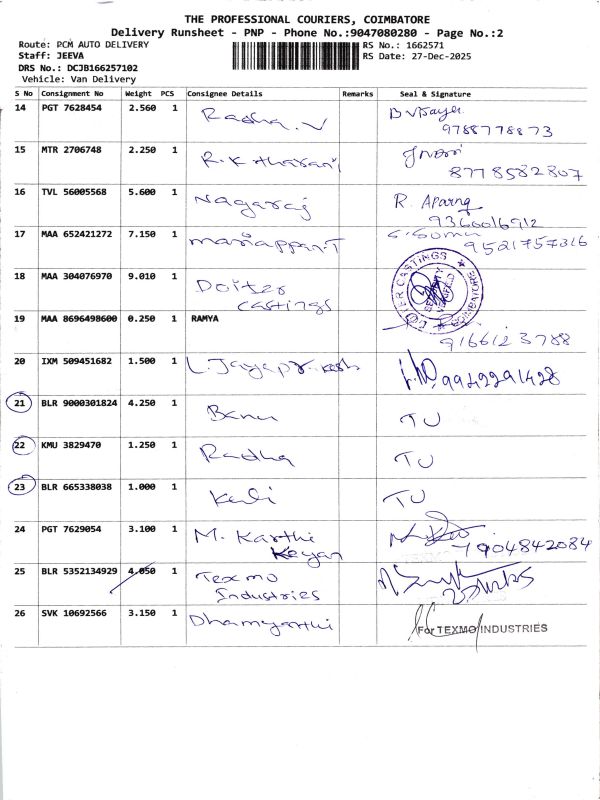 THE PROFESSIONAL COURIERS, COIMBATORE
Delivery Runsheet - PNP - Phone No.:9047080280 - Page No.:2
Route: PCM AUTO DELIVERY
RS No.: 1662571
Staff: JEEVA
RS Date: 27-Dec-2025
DRS No.: DCJB166257102
Vehicle: Van Delivery
S No Consignment No Weight PCS Consignee Details Remarks Seal & Signature
14 PGT 7628454 2.560 1 Radha. V
9788778873
15 MTR 2706748 2.250 1 R.K tharani
8778582807
16 TVL 56005568 5.600 1 Nagaraj R. Aparna
9360016912
17 MAA 652421272 7.150 1 mariappan.T S. Somu
9521757316
18 MAA 304076970 9.010 1 Doiter
castings
CASTINGS
SECURITY
COIMBATORE
19 MAA 8696498600 0.250 1 RAMYA
9166123788
20 IXM 509451682 1.500 1 L. Jayaprakash 9942291428
21 BLR 9000301824 4.250 1 Banu TU
22 KMU 3829470 1.250 1 Radha TU
23 BLR 665338038 1.000 1 Kali TU
24 PGT 7629054 3.100 1 M. Karthi
Keyan
7904842084
25 BLR 5352134929 4.050 1 Texmo
Industries
26 SVK 10692566 3.150 1 Dhamyanthi
For TEXMO INDUSTRIES